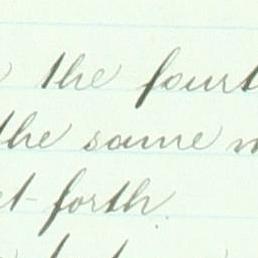 the fourt
the same
et-forth.